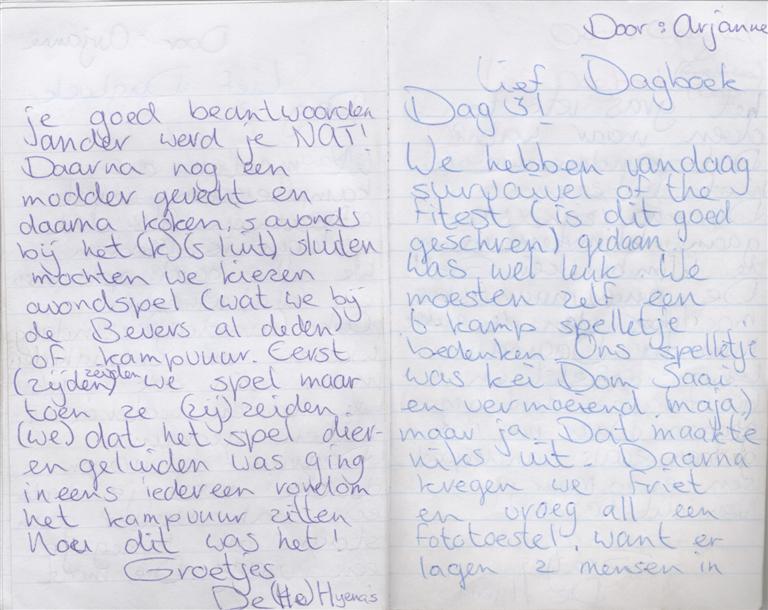 je goed beantwoorden
ander werd je NAT!
Daarna nog een
modder gevecht en
daarna koken, s avonds
bij het (k)(s luit) sluiten
mochten we kiezen
avondspel (wat we bij
de Bevers al deden)
of kampvuur. Eerst
(zijden) zeiden we spel maar
toen ze (zij) zeiden
(we) dat het spel dier-
en geluiden was ging
ineens iedereen rondom
het kampvuur zitten
Nou dit was het!
Groetjes
De (He) Hyena's
Door: Arjanne
lief Dagboek
Dag 3!
We hebben vandaag
survaivel of the
fitest (is dit goed
geschren) gedaan
was wel leuk. We
moesten zelf een
6-kamp spelletje
bedenken Ons spelletje
was kei Dom Saai
en vermoeiend (maja)
maar ja. Dat maakte
niks uit. Daarna
kregen we Friet
en vroeg all een
fototoestel, want er
lagen 2 mensen in